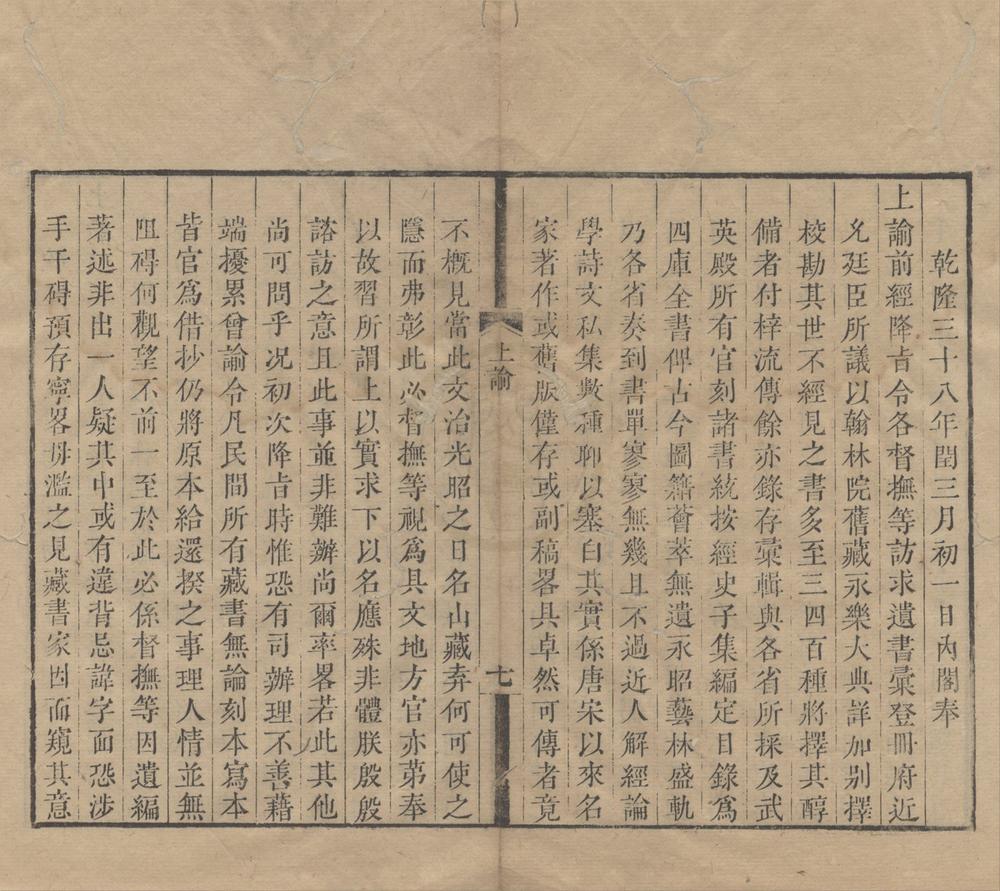 乾隆三十八年閏三月初一日內閣奉
上諭前經降㫖令各督撫等訪求遺書彙登冊府近
允廷臣所議以翰林院舊藏永樂大典詳加别擇
校勘其世不經見之書多至三四百種將擇其醇
備者付梓流傳餘亦錄存彙輯與各省所採及武
英殿所有官刻諸書統按經史子集編定目錄爲
四庫全書俾古今圖籍薈萃無遺永昭藝林盛軌
乃各省奏到書單寥寥無幾且不過近人解經論
學詩文私集數種聊以塞白其實係唐宋以來名
家著作或舊版僅存或副稿畧具卓然可傳者竟
上諭
七
不概見當此文治光昭之日名山藏弆何可使之
隱而弗彰此必督撫等視爲具文地方官亦第奉
以故習所謂上以實求下以名應殊非體朕殷殷
諮訪之意且此事並非難辦尚爾率畧若此其他
尚可問乎况初次降㫖時惟恐有司辦理不善藉
端擾累曾諭令凡民間所有藏書無論刻本寫本
皆官爲借抄仍將原本給還揆之事理人情並無
阻碍何觀望不前一至於此必係督撫等因遺編
著述非出一人疑其中或有違背忌諱字面恐涉
手干碍預存寧畧毋濫之見藏書家因而窺其意